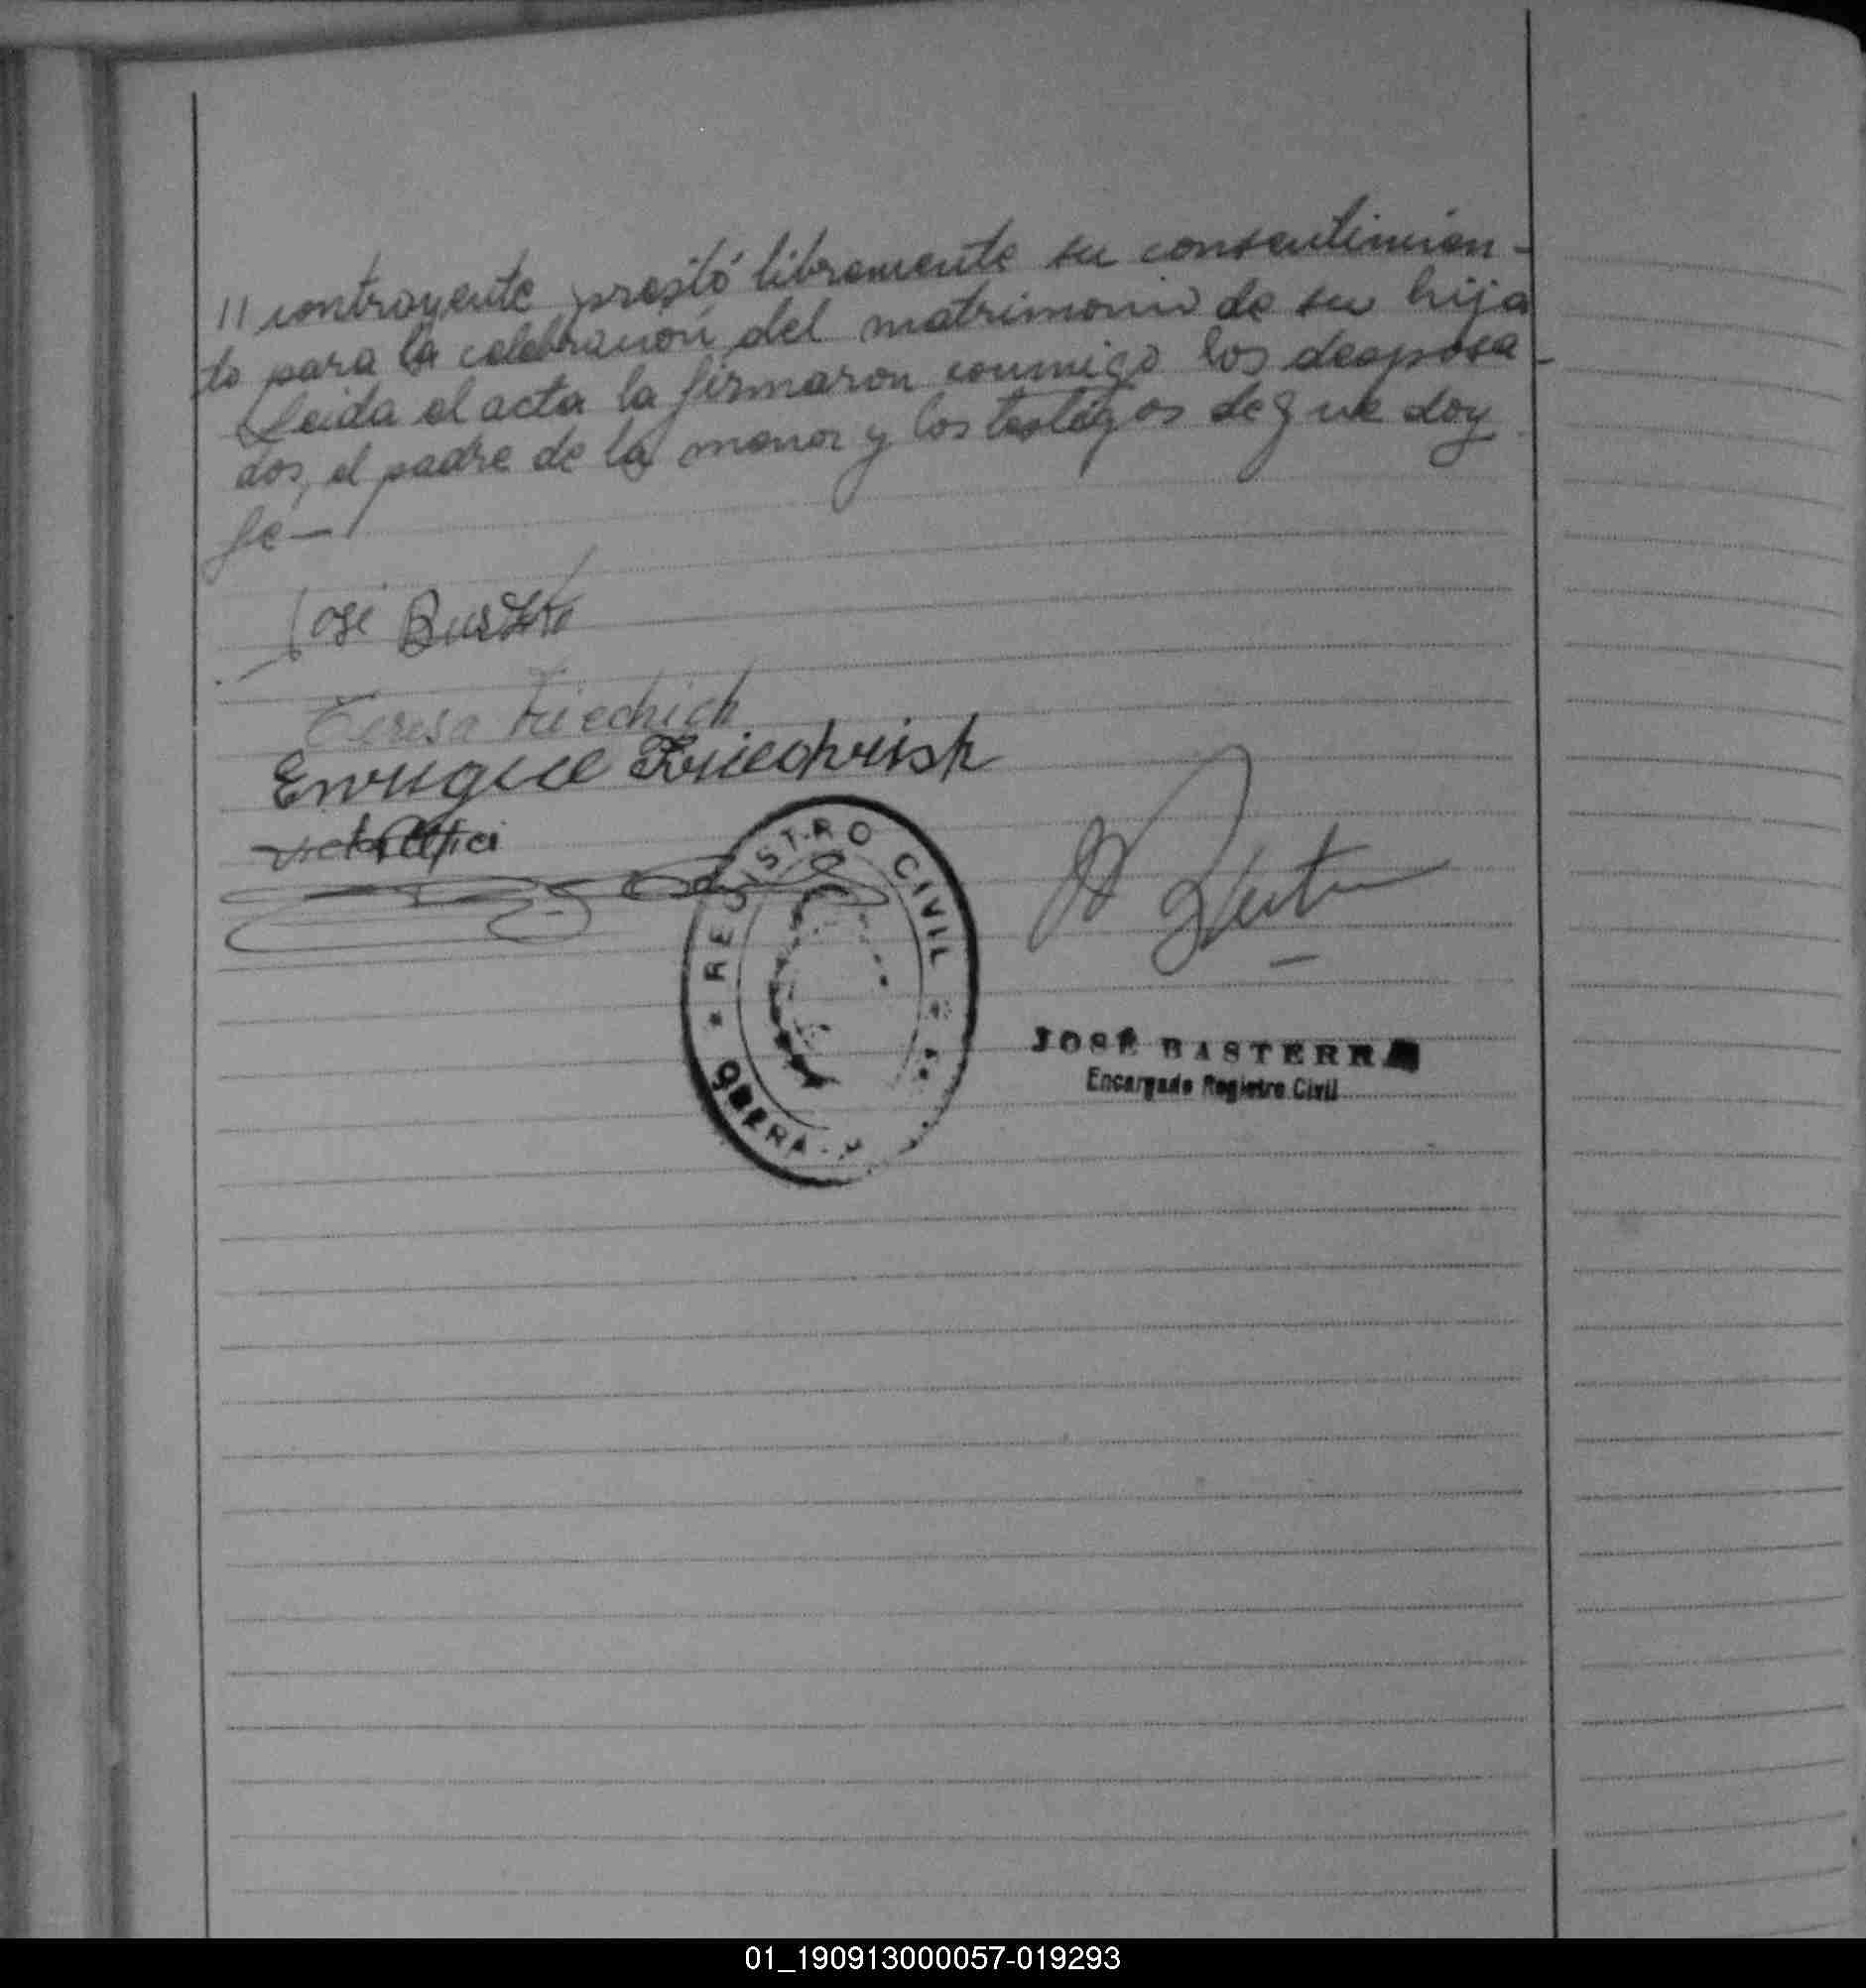 // contrayente prestó libremente su consentimien-
to para la celebración del matrimonio de su hija
Leida el acta la firmaron conmigo los desposa-
dos, el padre de la menor y los testigos de que doy
fé —
José
Teresa Friedrich
Enrique Friedrish
REGISTRO CIVIL
OBERA
JOSÉ BASTERRA
Encargado Registro Civil
01_190913000057-019293